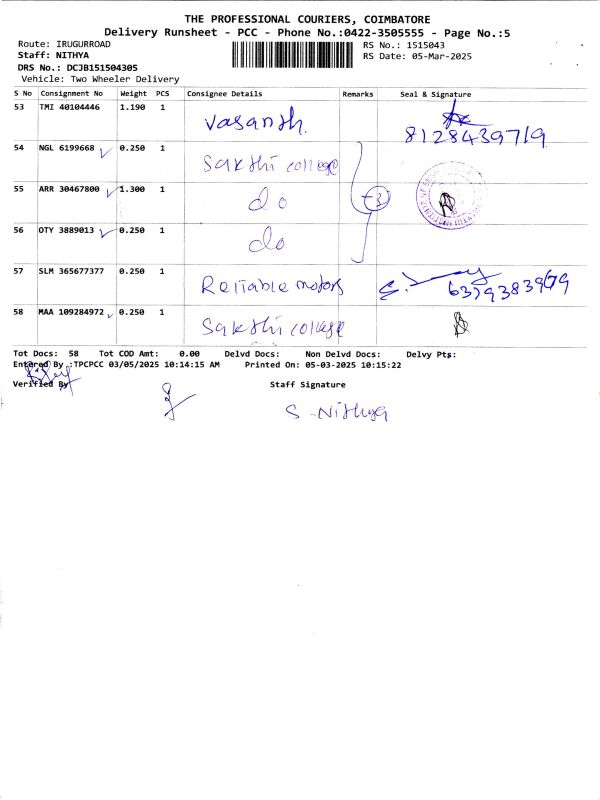 THE PROFESSIONAL COURIERS, COIMBATORE
Delivery Runsheet - PCC - Phone No.:0422-3505555 - Page No.:5
Route: IRUGURROAD RS No.: 1515043
Staff: NITHYA RS Date: 05-Mar-2025
DRS No.: DCJB151504305
Vehicle: Two Wheeler Delivery
S No Consignment No Weight PCS Consignee Details Remarks Seal & Signature
53 TMI 40104446 1.190 1 Vasanth. 8128439719
54 NGL 6199668 ✓ 0.250 1 Sakthi college
55 ARR 30467800 ✓ 1.300 1 do 3
56 OTY 3889013 ✓ 0.250 1 do
57 SLM 365677377 0.250 1 Reliable motors 6379383979
58 MAA 109284972 ✓ 0.250 1 Sakthi college
Tot Docs: 58 Tot COD Amt: 0.00 Delvd Docs: Non Delvd Docs: Delvy Pts:
Entered By :TPCPCC 03/05/2025 10:14:15 AM Printed On: 05-03-2025 10:15:22
Verified By Staff Signature
S-Nithya